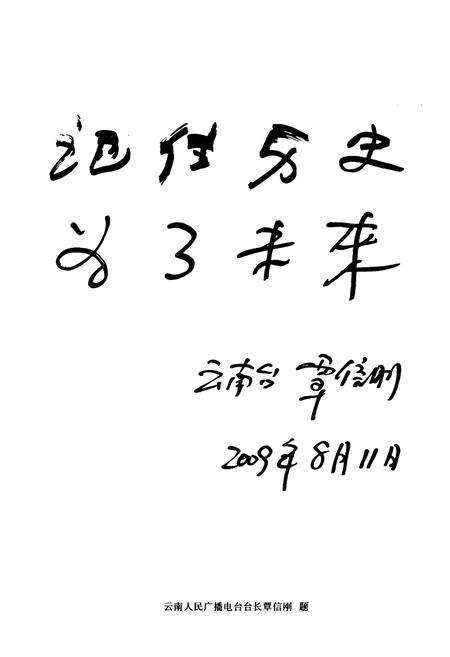 记住历史
为了未来
云南台 覃信刚
2009年8月11日
云南人民广播电台台长覃信刚 题